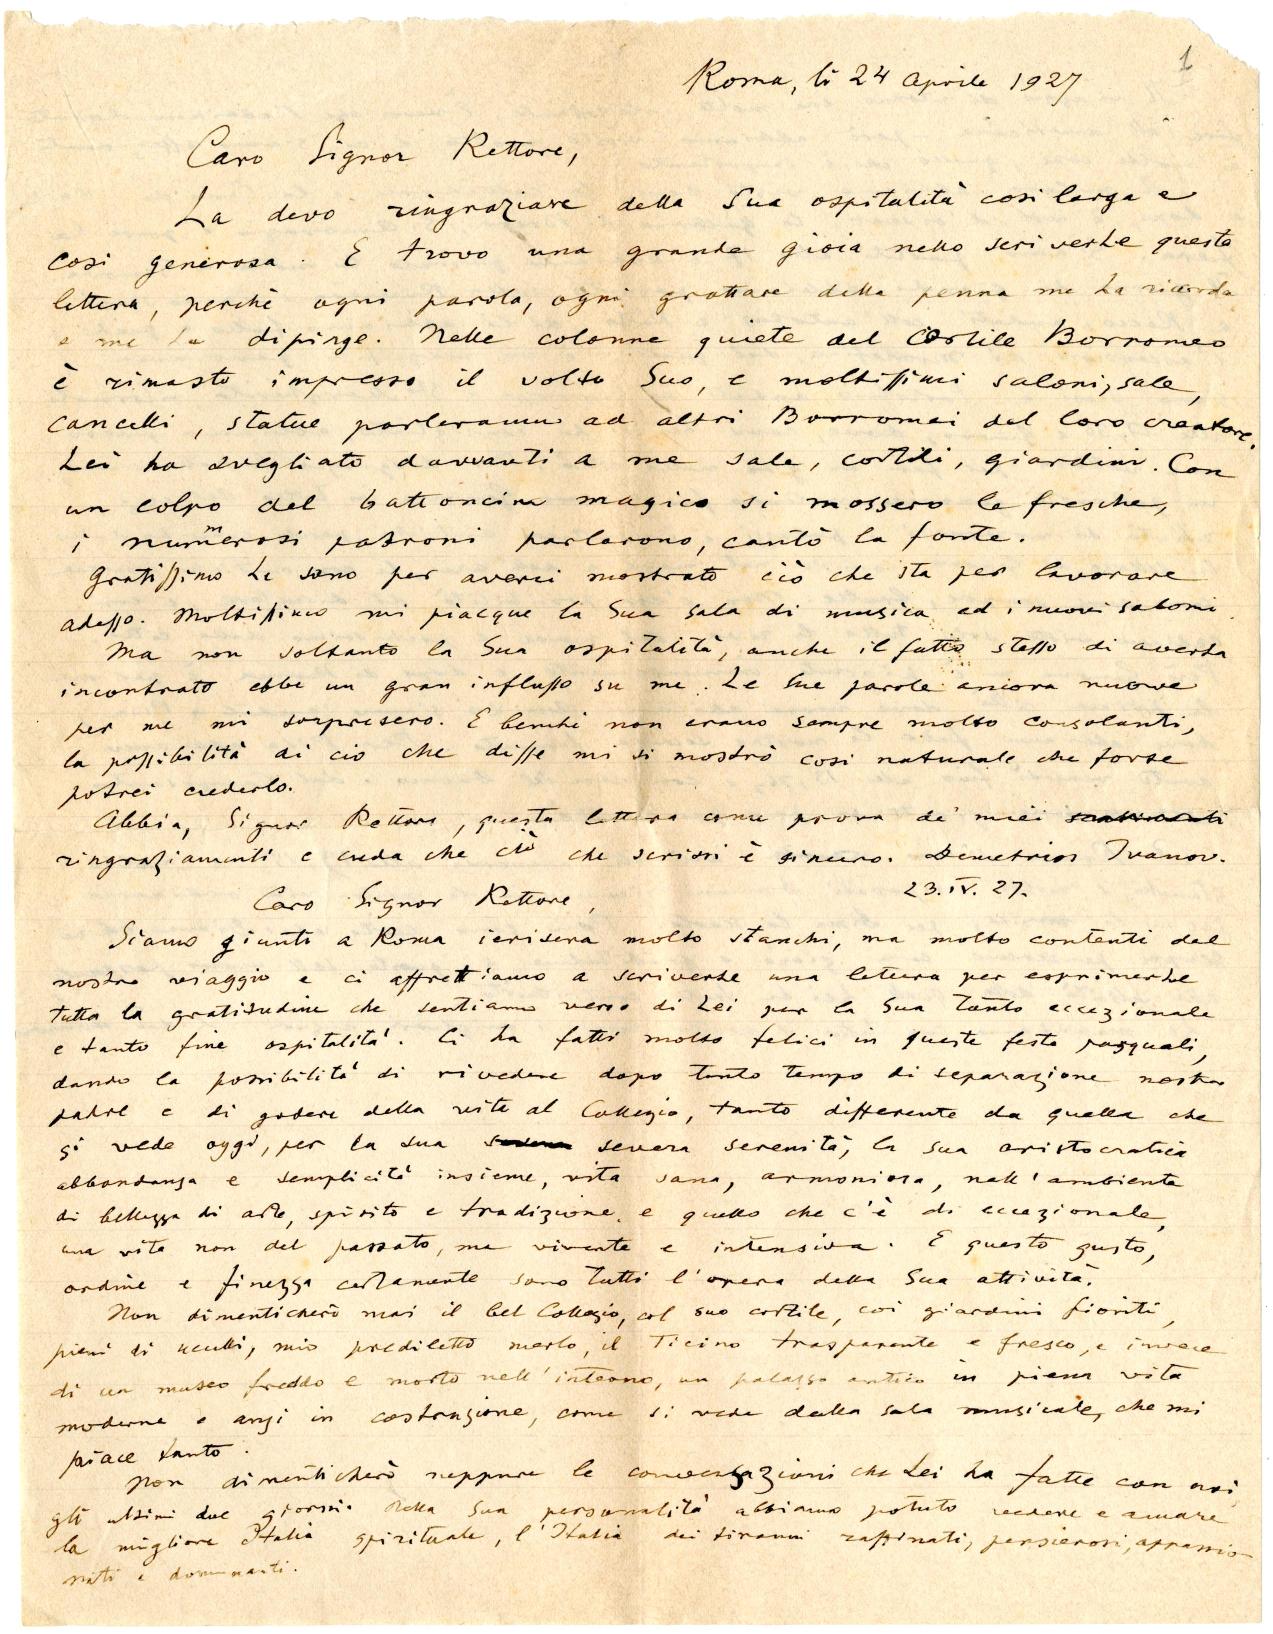 1
Roma, li 24 aprile 1927
Caro Signor Rettore,
La devo ringraziare della Sua ospitalità così larga e
così generosa. E trovo una grande gioia nello scriverLe questa
lettera, perchè ogni parola, ogni grattare della penna me La ricorda
e me La dipinge. Nelle colonne quiete del cortile Borromeo
è rimasto impresso il volto Suo, e moltissimi saloni, sale,
cancelli, statue parleranno ad altri Borromei del loro creatore.
Lei ha svegliato davanti a me sale, cortili, giardini. Con
un colpo del battoncino magico si mossero le fresche,
i nummerosi patroni parlarono, cantò la fonte.
Gratissimo Le sono per averci mostrato ciò che sta per lavorare
adesso. Moltissimo mi piacque la Sua sala di musica ed i nuovi saloni.
Ma non soltanto la Sua ospitalità, anche il fatto stesso di averLa
incontrato ebbe un gran influsso su me. Le Sue parole ancora nuove
per me mi sorpresero. E benchè non erano sempre molto consolanti,
la possibilità di ciò che disse mi si mostrò così naturale che forse
potrei crederlo.
Abbia, Signor Rettore, questa lettera come prova de' miei
ringraziamenti e creda che ciò che scrissi è sincero. Demetrios Ivanov.
23.IV.27.
Caro Signor Rettore,
Siamo giunti a Roma ierisera molto stanchi, ma molto contenti del
nostro viaggio e ci affrettiamo a scriverLe una lettera per esprimerLe
tutta la gratitudine che sentiamo verso di Lei per la Sua tanto eccezionale
e tanto fine ospitalità. Ci ha fatti molto felici in queste feste pasquali,
dando la possibilità di rivedere dopo tanto tempo di separazione nostro
padre e di godere della vita al Collegio, tanto differente da quella che
si vede oggi, per la sua severa serenità, la sua aristocratica
abbondanza e semplicità insieme, vita sana, armoniosa, nell'ambiente
di bellezza di arte, spirito e tradizione, e quello che c'è di eccezionale,
una vita non del passato, ma vivente e intensiva. E questo gusto,
ordine e finezza certamente sono tutti l'opera della Sua attività.
Non dimenticherò mai il bel Collegio, col suo cortile, coi giardini fioriti,
pieni di ucelli, mio prediletto merlo, il Ticino trasparente e fresco, e invece
di un museo freddo e morto nell'interno, un palazzo antico in piena vita
moderna e anzi in costruzione, come si vede dalla sala musicale, che mi
piace tanto.
Non dimenticherò neppure le conversazioni che Lei ha fatte con noi
gli ultimi due giorni. Nella Sua personalità abbiamo potuto vedere e amare
la migliore Italia spirituale, l'Italia dei tiranni raffinati, pensierosi, appassio-
nati e dominanti.